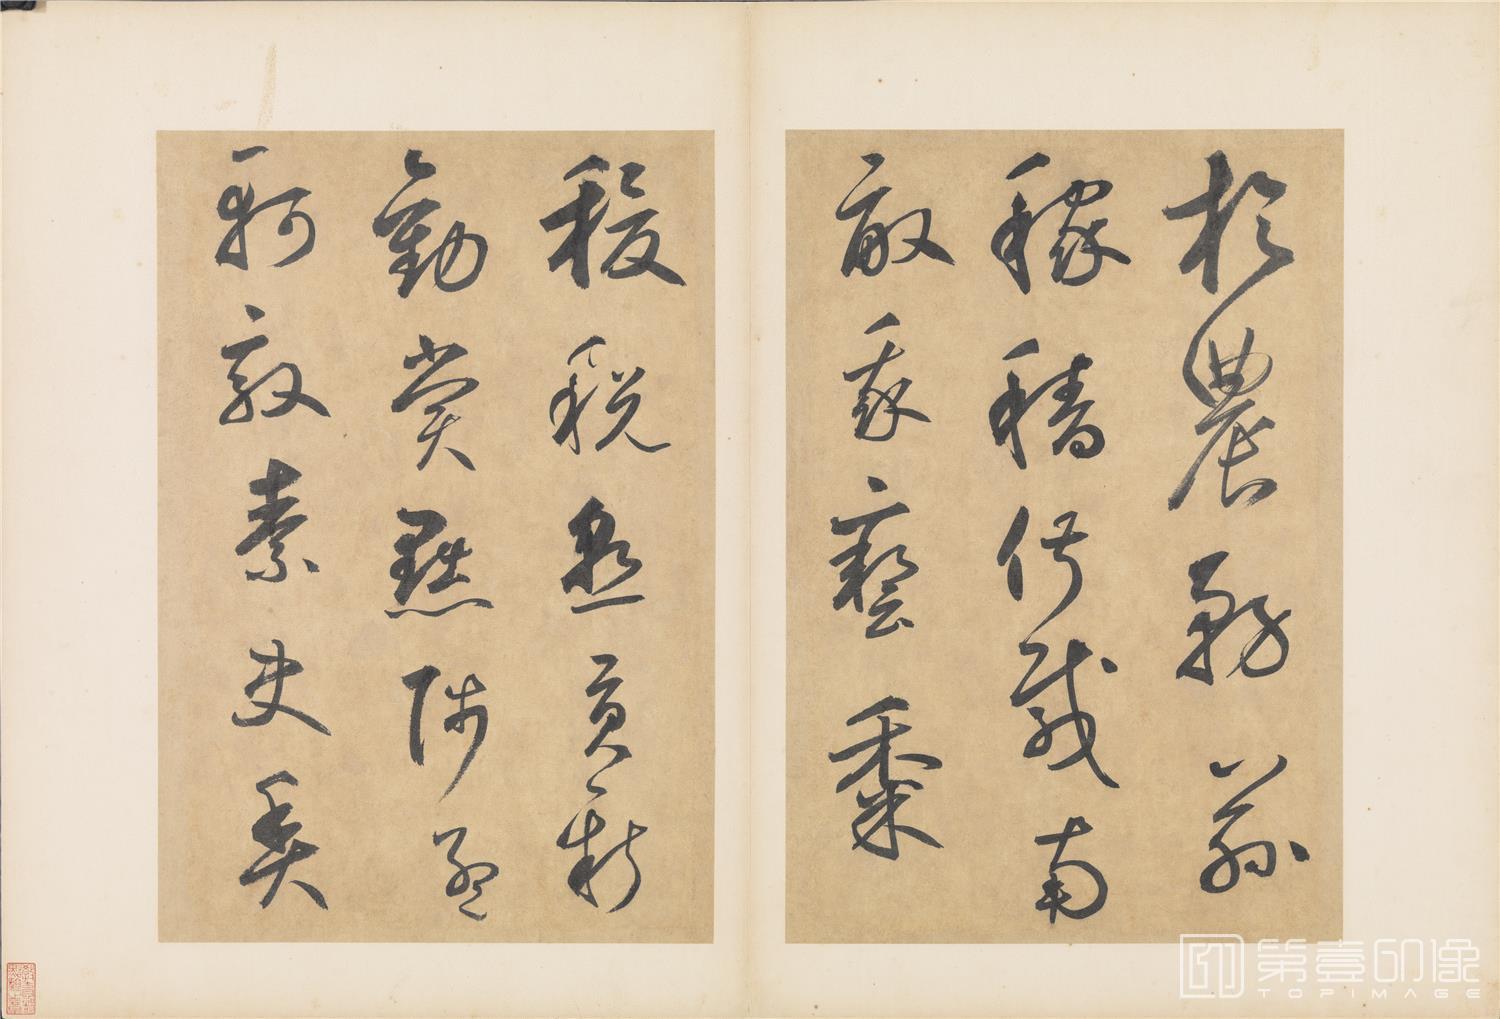 於農務茲
稼穡俶載南
畝我藝黍
稷稅熟貢新
勸賞黜陟孟
軻敦素史魚
第壹印像
TOPIMAGE